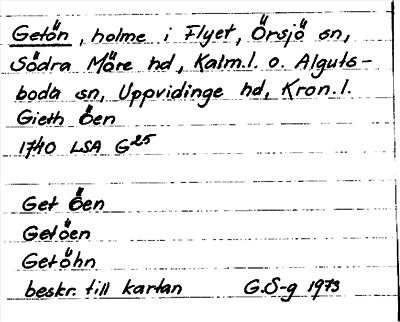 Getön, holme i Flyet, Örsjö sn,
Södra Möre hd, Kalm.l. o. Alguts-
boda sn, Uppvidinge hd, Kron.l.
Gieth Öen
1740 LSA G25
Get Öen
Getöen
Getöhn
beskr. till kartan G.S-g 1973